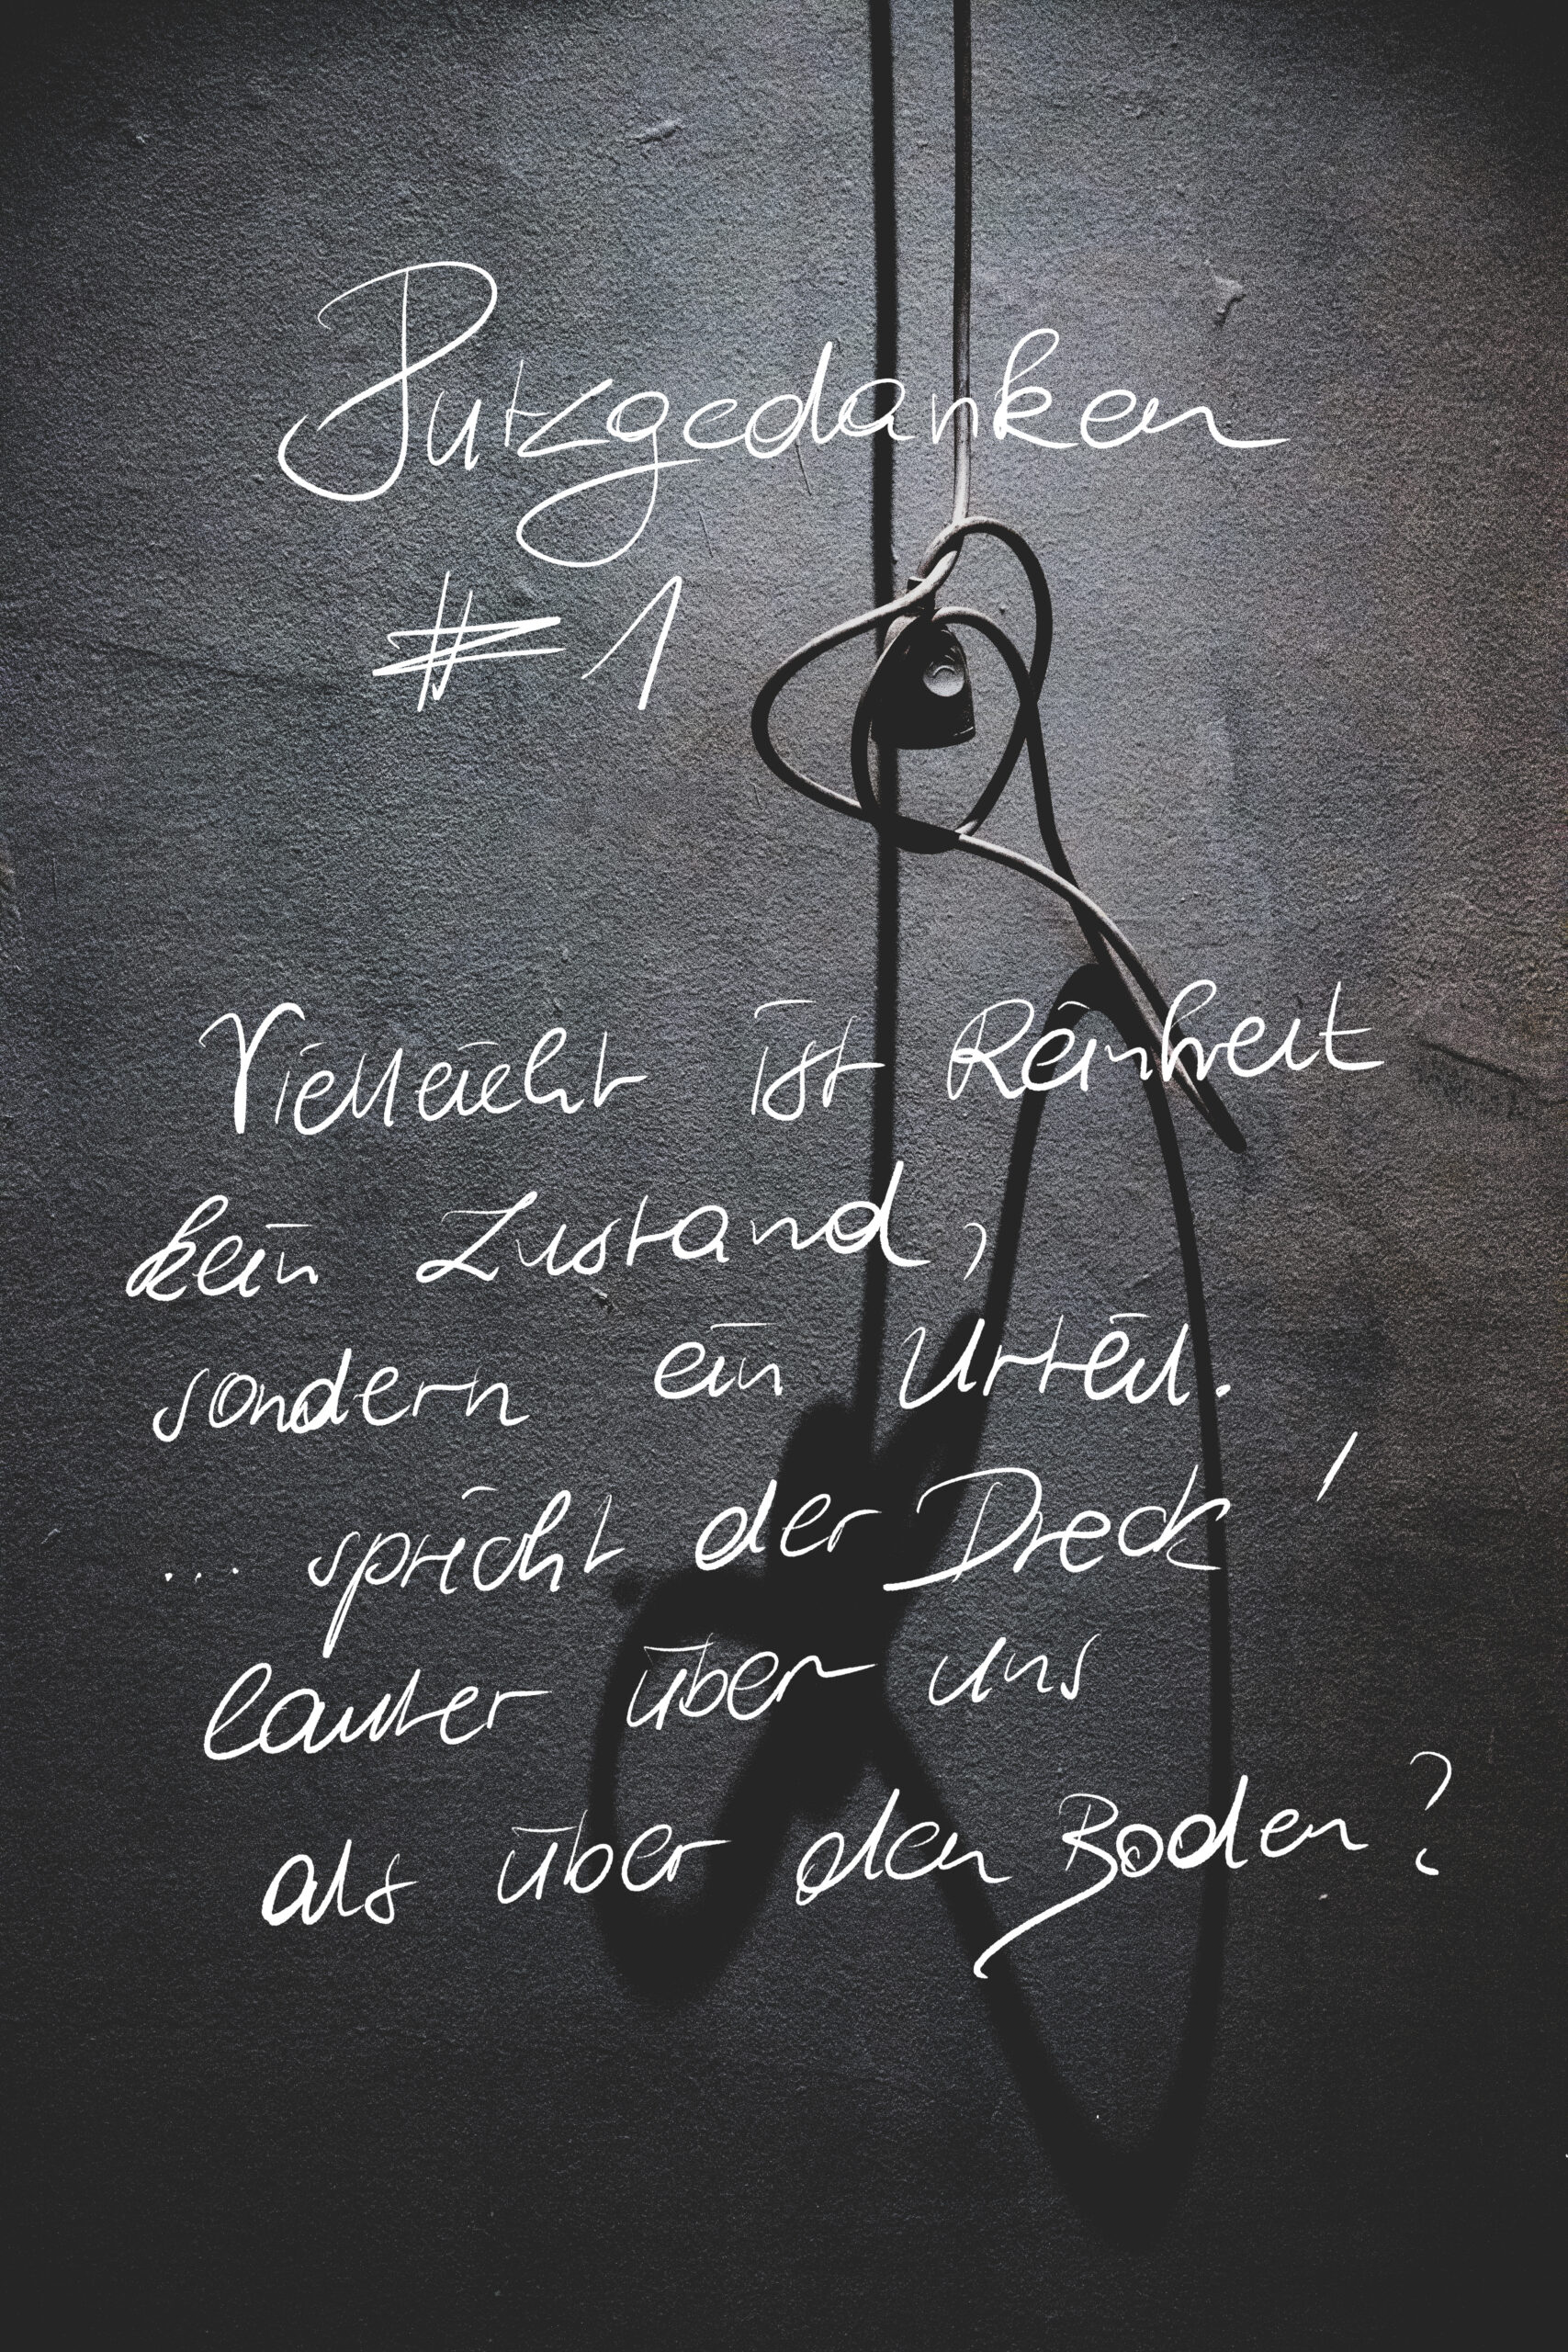 Putzgedanken
#1
Vielleicht ist Reinheit
kein Zustand,
sondern ein Urteil.
... spricht der Dreck '
lauter über uns
als über den Boden?